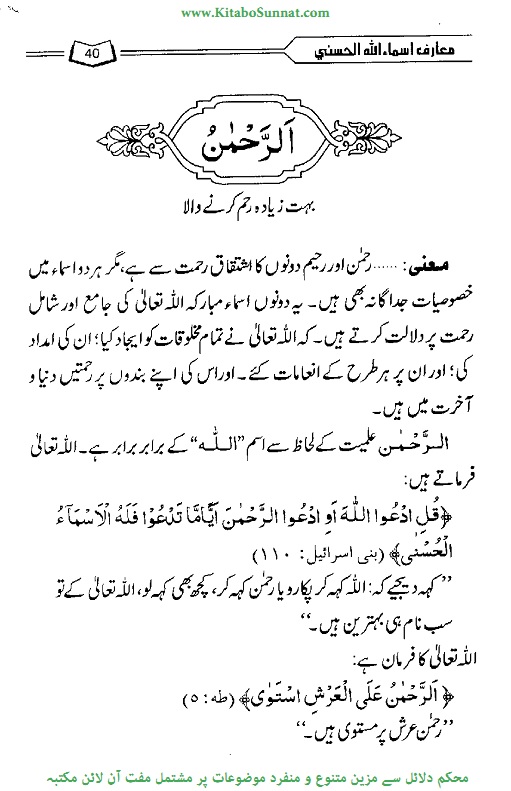 www.KitaboSunnat.com
معارف اسماء اللہ الحسنیٰ
40
اَلرَّحْمٰنُ
بہت زیادہ رحم کرنے والا
معنی: ......رحمٰن اور رحیم دونوں کا اشتقاق رحمت سے ہے، مگر ہر دو اسماء میں
خصوصیات جداگانہ بھی ہیں۔ یہ دونوں اسماء مبارکہ اللہ تعالیٰ کی جامع اور شامل
رحمت پر دلالت کرتے ہیں۔ کہ اللہ تعالیٰ نے تمام مخلوقات کو ایجاد کیا؛ ان کی امداد
کی؛ اور ان پر ہر طرح کے انعامات کئے۔ اور اس کی اپنے بندوں پر رحمتیں دنیا و
آخرت میں ہیں۔
الرَّحْمٰن علمیت کے لحاظ سے اسم ”اللّٰہ“ کے برابر برابر ہے۔ اللہ تعالیٰ
فرماتے ہیں:
﴿قُلِ ادْعُوا اللّٰهَ اَوِ ادْعُوا الرَّحْمٰنَ اَيًّامَّا تَدْعُوْا فَلَهُ الْاَسْمَآءُ
الْحُسْنٰى﴾ (بنی اسرائیل: ۱۱۰)
”کہہ دیجیے کہ: اللہ کہہ کر پکارو یا رحمٰن کہہ کر، کچھ بھی کہہ لو، اللہ تعالیٰ کے تو
سب نام ہی بہترین ہیں۔“
اللہ تعالیٰ کا فرمان ہے:
﴿اَلرَّحْمٰنُ عَلَى الْعَرْشِ اسْتَوٰى﴾ (طه: ۵)
”رحمٰن عرش پر مستوی ہیں۔“
محکم دلائل سے مزین متنوع و منفرد موضوعات پر مشتمل مفت آن لائن مکتبہ